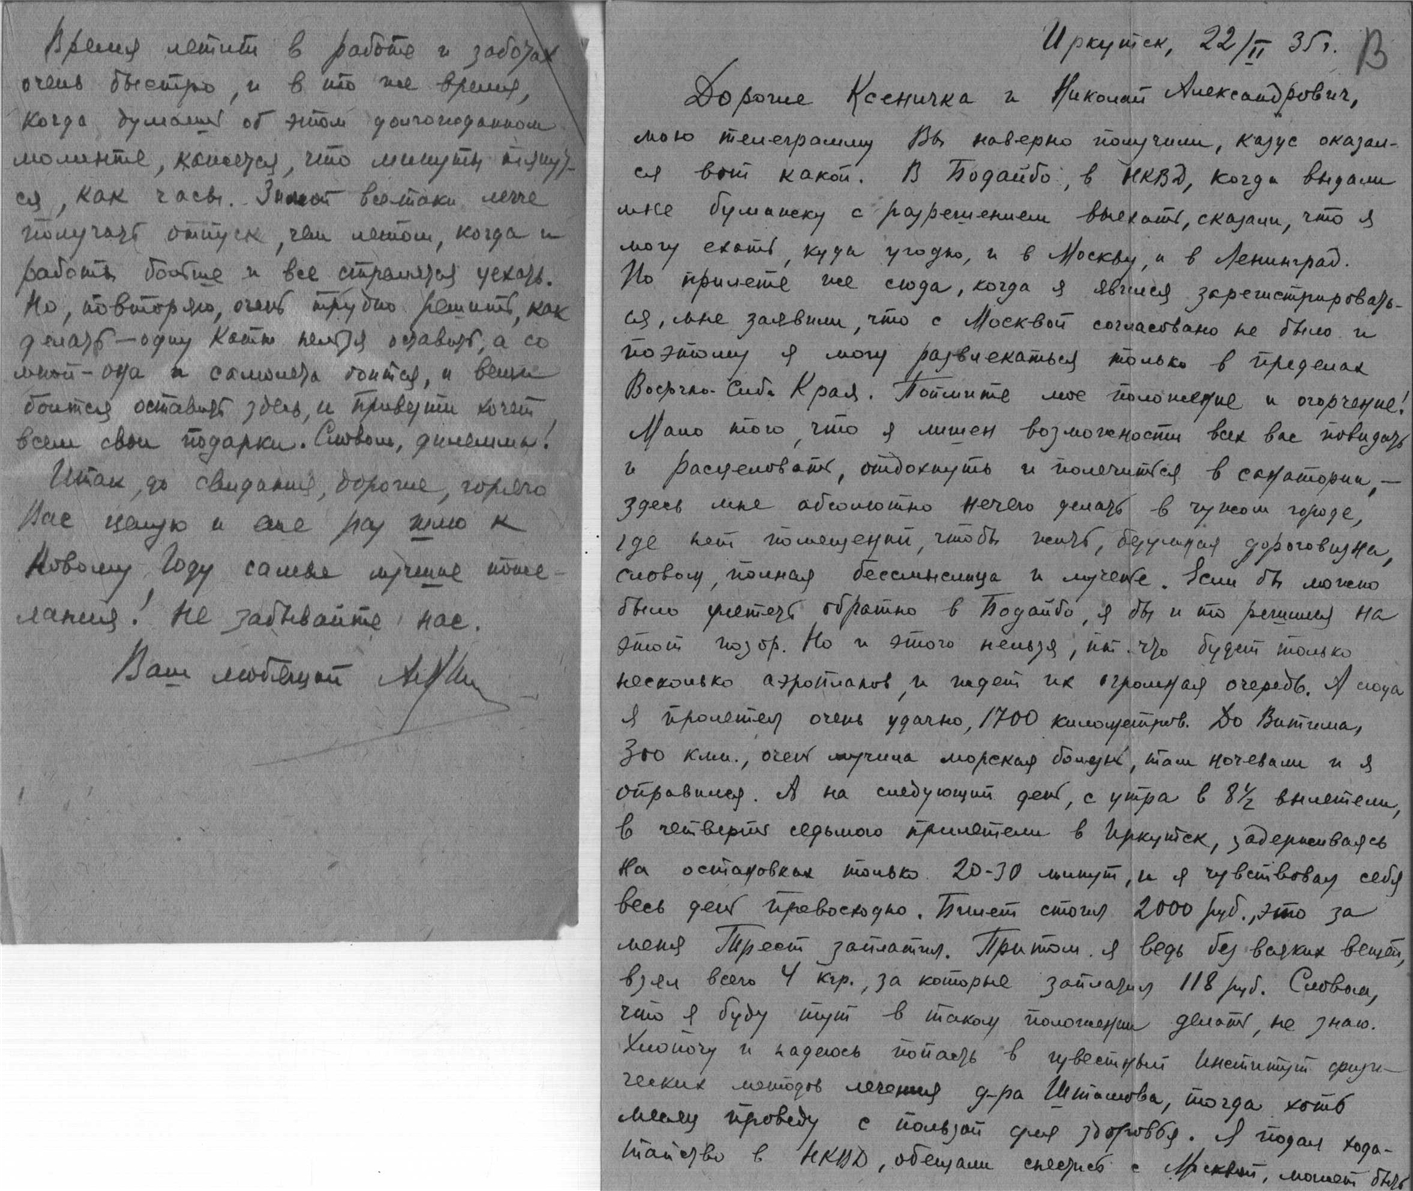 Время летит в работе и заботах
очень быстро, и в то же время,
когда думаешь об этом долгожданном
моменте, кажется, что минуты тянут-
ся, как часы. Зимой всетаки легче
получать отпуск, чем летом, когда и
работы больше и все стремятся уехать.
Но, повторяю, очень трудно решить, как
делать – одну Катю нельзя оставить, а со
мной – она и самолета боится, и вещи
боится оставить здесь, и привезти хочет
всем свои подарки. Словом, дилеммы!
Итак, до свидания, дорогие, горячо
Вас целую и еще раз шлю к
Новому Году самые лучшие поже-
лания! Не забывайте нас.
Ваш любящий
Иркутск, 22/II 35г. В
Дорогие Ксеничка и Николай Александрович,
мою телеграмму Вы наверно получили, казус оказал-
ся вот какой. В Бодайбо, в НКВД, когда выдали
мне бумажку с разрешением выехать, сказали, что я
могу ехать, куда угодно, и в Москву, и в Ленинград.
По прилете же сюда, когда я явился зарегистрировать-
ся, мне заявили, что с Москвой согласовано не было и
поэтому я могу развлекаться только в пределах
Восточно-Сиб. Края. Поймите мое положение и огорчение!
Мало того, что я лишен возможности всех вас повидать
и расцеловать, отдохнуть и полечиться в санатории, –
здесь мне абсолютно нечего делать в чужом городе,
где нет помещений, чтобы жить, безумная дороговизна,
словом, полная бессмыслица и мучение. Если бы можно
было улететь обратно в Бодайбо, я бы и то решился на
этот позор. Но и этого нельзя, пт. что будет только
несколько аэропланов, и ждет их огромная очередь. А сюда
я пролетел очень удачно, 1700 километров. До Витима,
300 клм., очень мучила морская болезнь, там ночевали и я
оправился. А на следующий день, с утра в 8½ вылетели,
в четверть седьмого прилетели в Иркутск, задерживаясь
на остановках только 20-30 минут, и я чувствовал себя
весь день превосходно. Билет стоил 2000 руб., это за
меня Трест заплатил. Притом я ведь без всяких вещей,
взял всего 4 кгр., за которые заплатил 118 руб. Словом,
что я буду тут в таком положении делать, не знаю.
Хлопочу и надеюсь попасть в известный Институт физи-
ческих методов лечения д-ра тогда хоть
месяц проведу с пользой для здоровья. Я подал хода-
тайство в НКВД, обещали снестись с Москвой, может быть